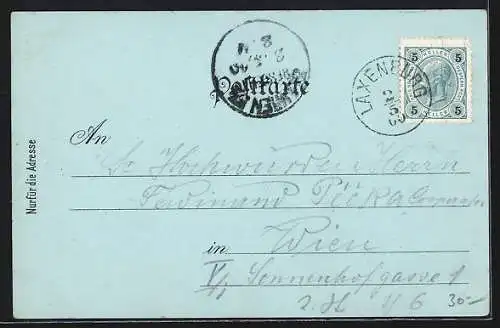 Postkarte
LAXENBURG
5 5
HELLER
5 5
Nur für die Adresse
An
Sr Hochwürden Herrn
Ferdinand Cooperator
in Wien
V/1 Sonnenhofgasse 1
2. St N 6 30-